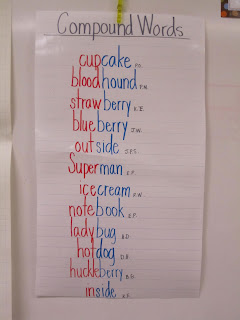 Compound Words
cupcake P.O.
bloodhound P.N.
strawberry
blueberry J.W.
outside J.P.S.
Superman E.P.
icecream P.W.
notebook E.P.
ladybug B.D.
hotdog D.B.
huckleberry B.D.
inside